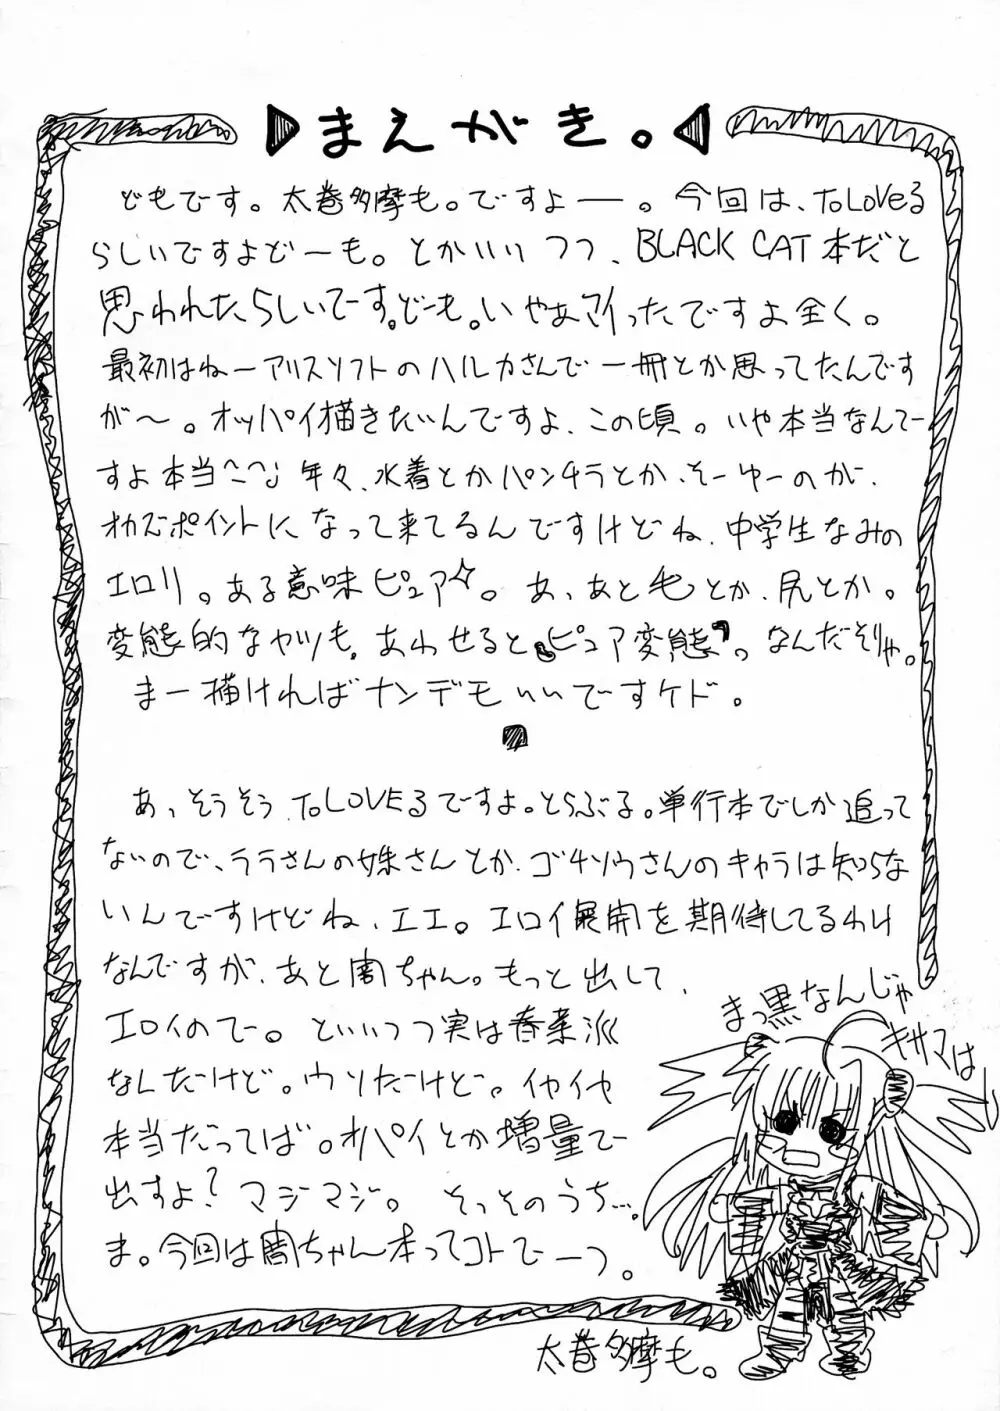 まえがき。
どもです。太巻多摩も。ですよー。今回は、ToLOVEる
らしいですよどーも。とかいいつつ、BLACK CAT本だと
思われたらしいでーす。どーも。いやあマイったですよ全く。
最初はねーアリスソフトのハルカさんで一冊とか思ってたんです
が〜。オッパイ描きたいんですよ、この頃。いや本当なんでー
すよ本当^^; 年々、水着とかパンチラとか、そーゆーのが、
オカズポイントになって来てるんですけどね、中学生なみの
エロリ。ある意味ピュア☆。あ、あと毛とか、尻とか。
変態的なヤツも。あわせると〝ピュア変態〞。なんだそりゃ。
まー描ければナンデモいいですケド。
あ、そうそう、ToLOVEるですよ。とらぶる。単行本でしか追って
ないので、ララさんの妹さんとか、ゴチソウさんのキャラは知らな
いんですけどね、エエ。エロイ展開を期待してるわけ
なんですが、あと闇ちゃん。もっと出して、
エロイのでー。といいつつ実は春菜派
なんだけど。ウソだけど。イヤイヤ
本当だってば。オパイとか増量で
出すよ?マジマジ。そっそのうち…。
ま。今回は闇ちゃん本ってコトでーつ。
まっ黒なんじゃ
キサマはー
太巻多摩も。